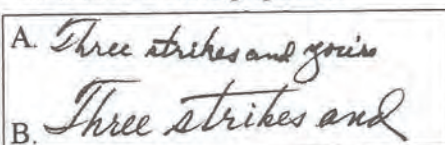 A. Three strikes and you're
B. Three strikes and